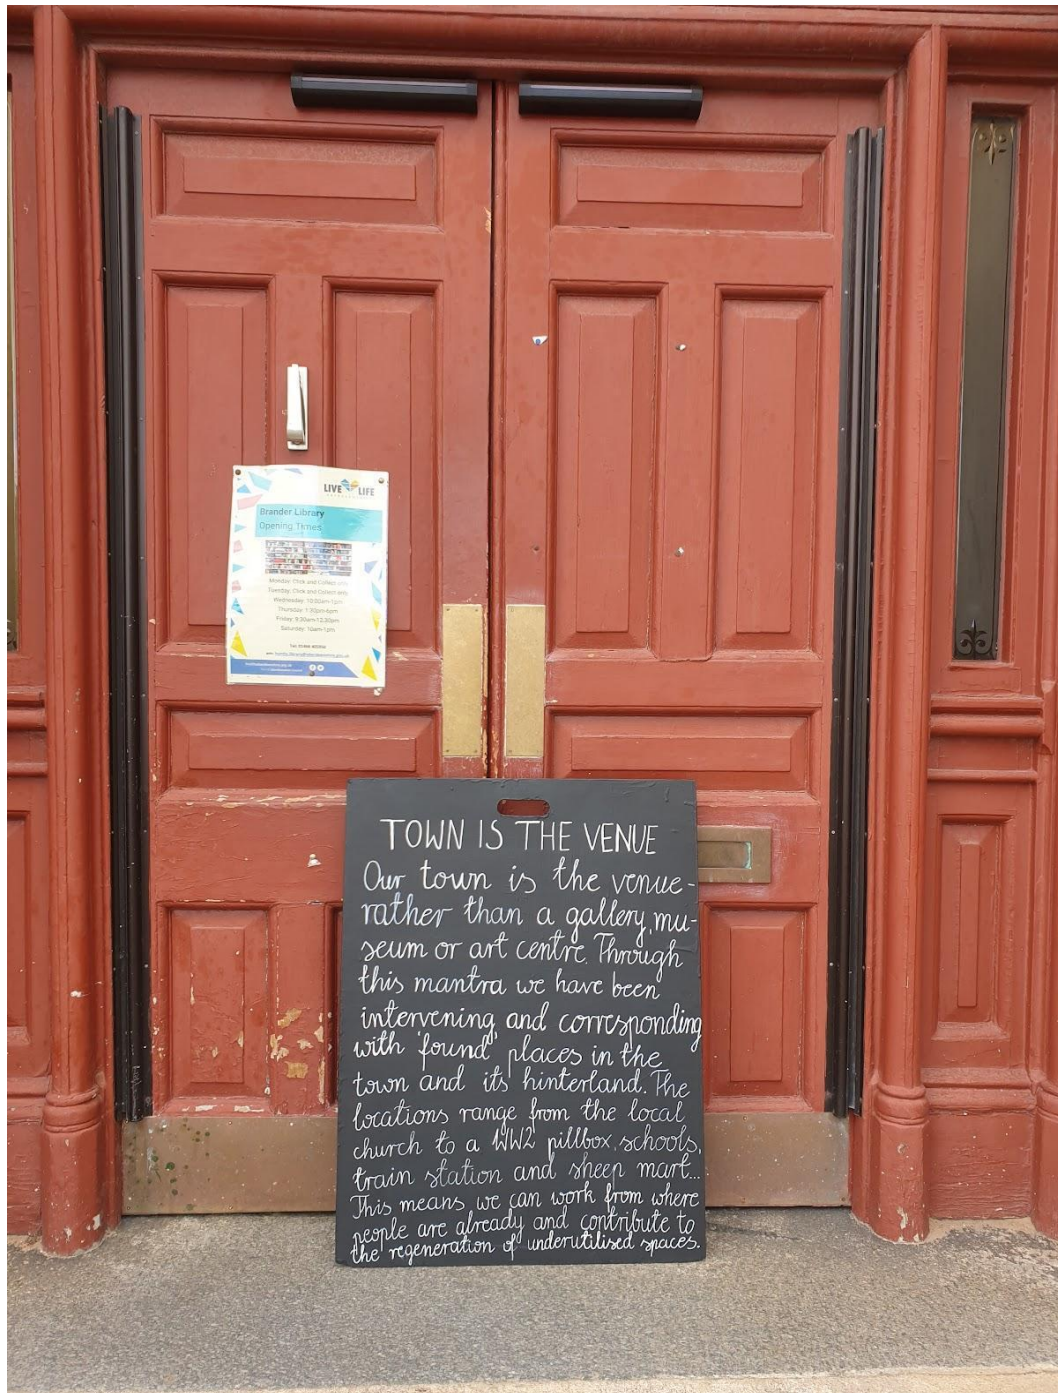 LIVE LIFE
Brander Library
Opening Times
Monday: Click and Collect only
Tuesday: Click and Collect only
Wednesday: 10:30am-1pm
Thursday: 1:30pm-6pm
Friday: 9:30am-12:30pm
Saturday: 10am-1pm
TOWN IS THE VENUE
Our town is the venue-
rather than a gallery, mu-
seum or art centre. Through
this mantra we have been
intervening and corresponding
with 'found' places in the
town and its hinterland. The
locations range from the local
church to a WW2 pillbox, schools,
train station and sheep mart...
This means we can work from where
people are already and contribute to
the regeneration of underutilised spaces.